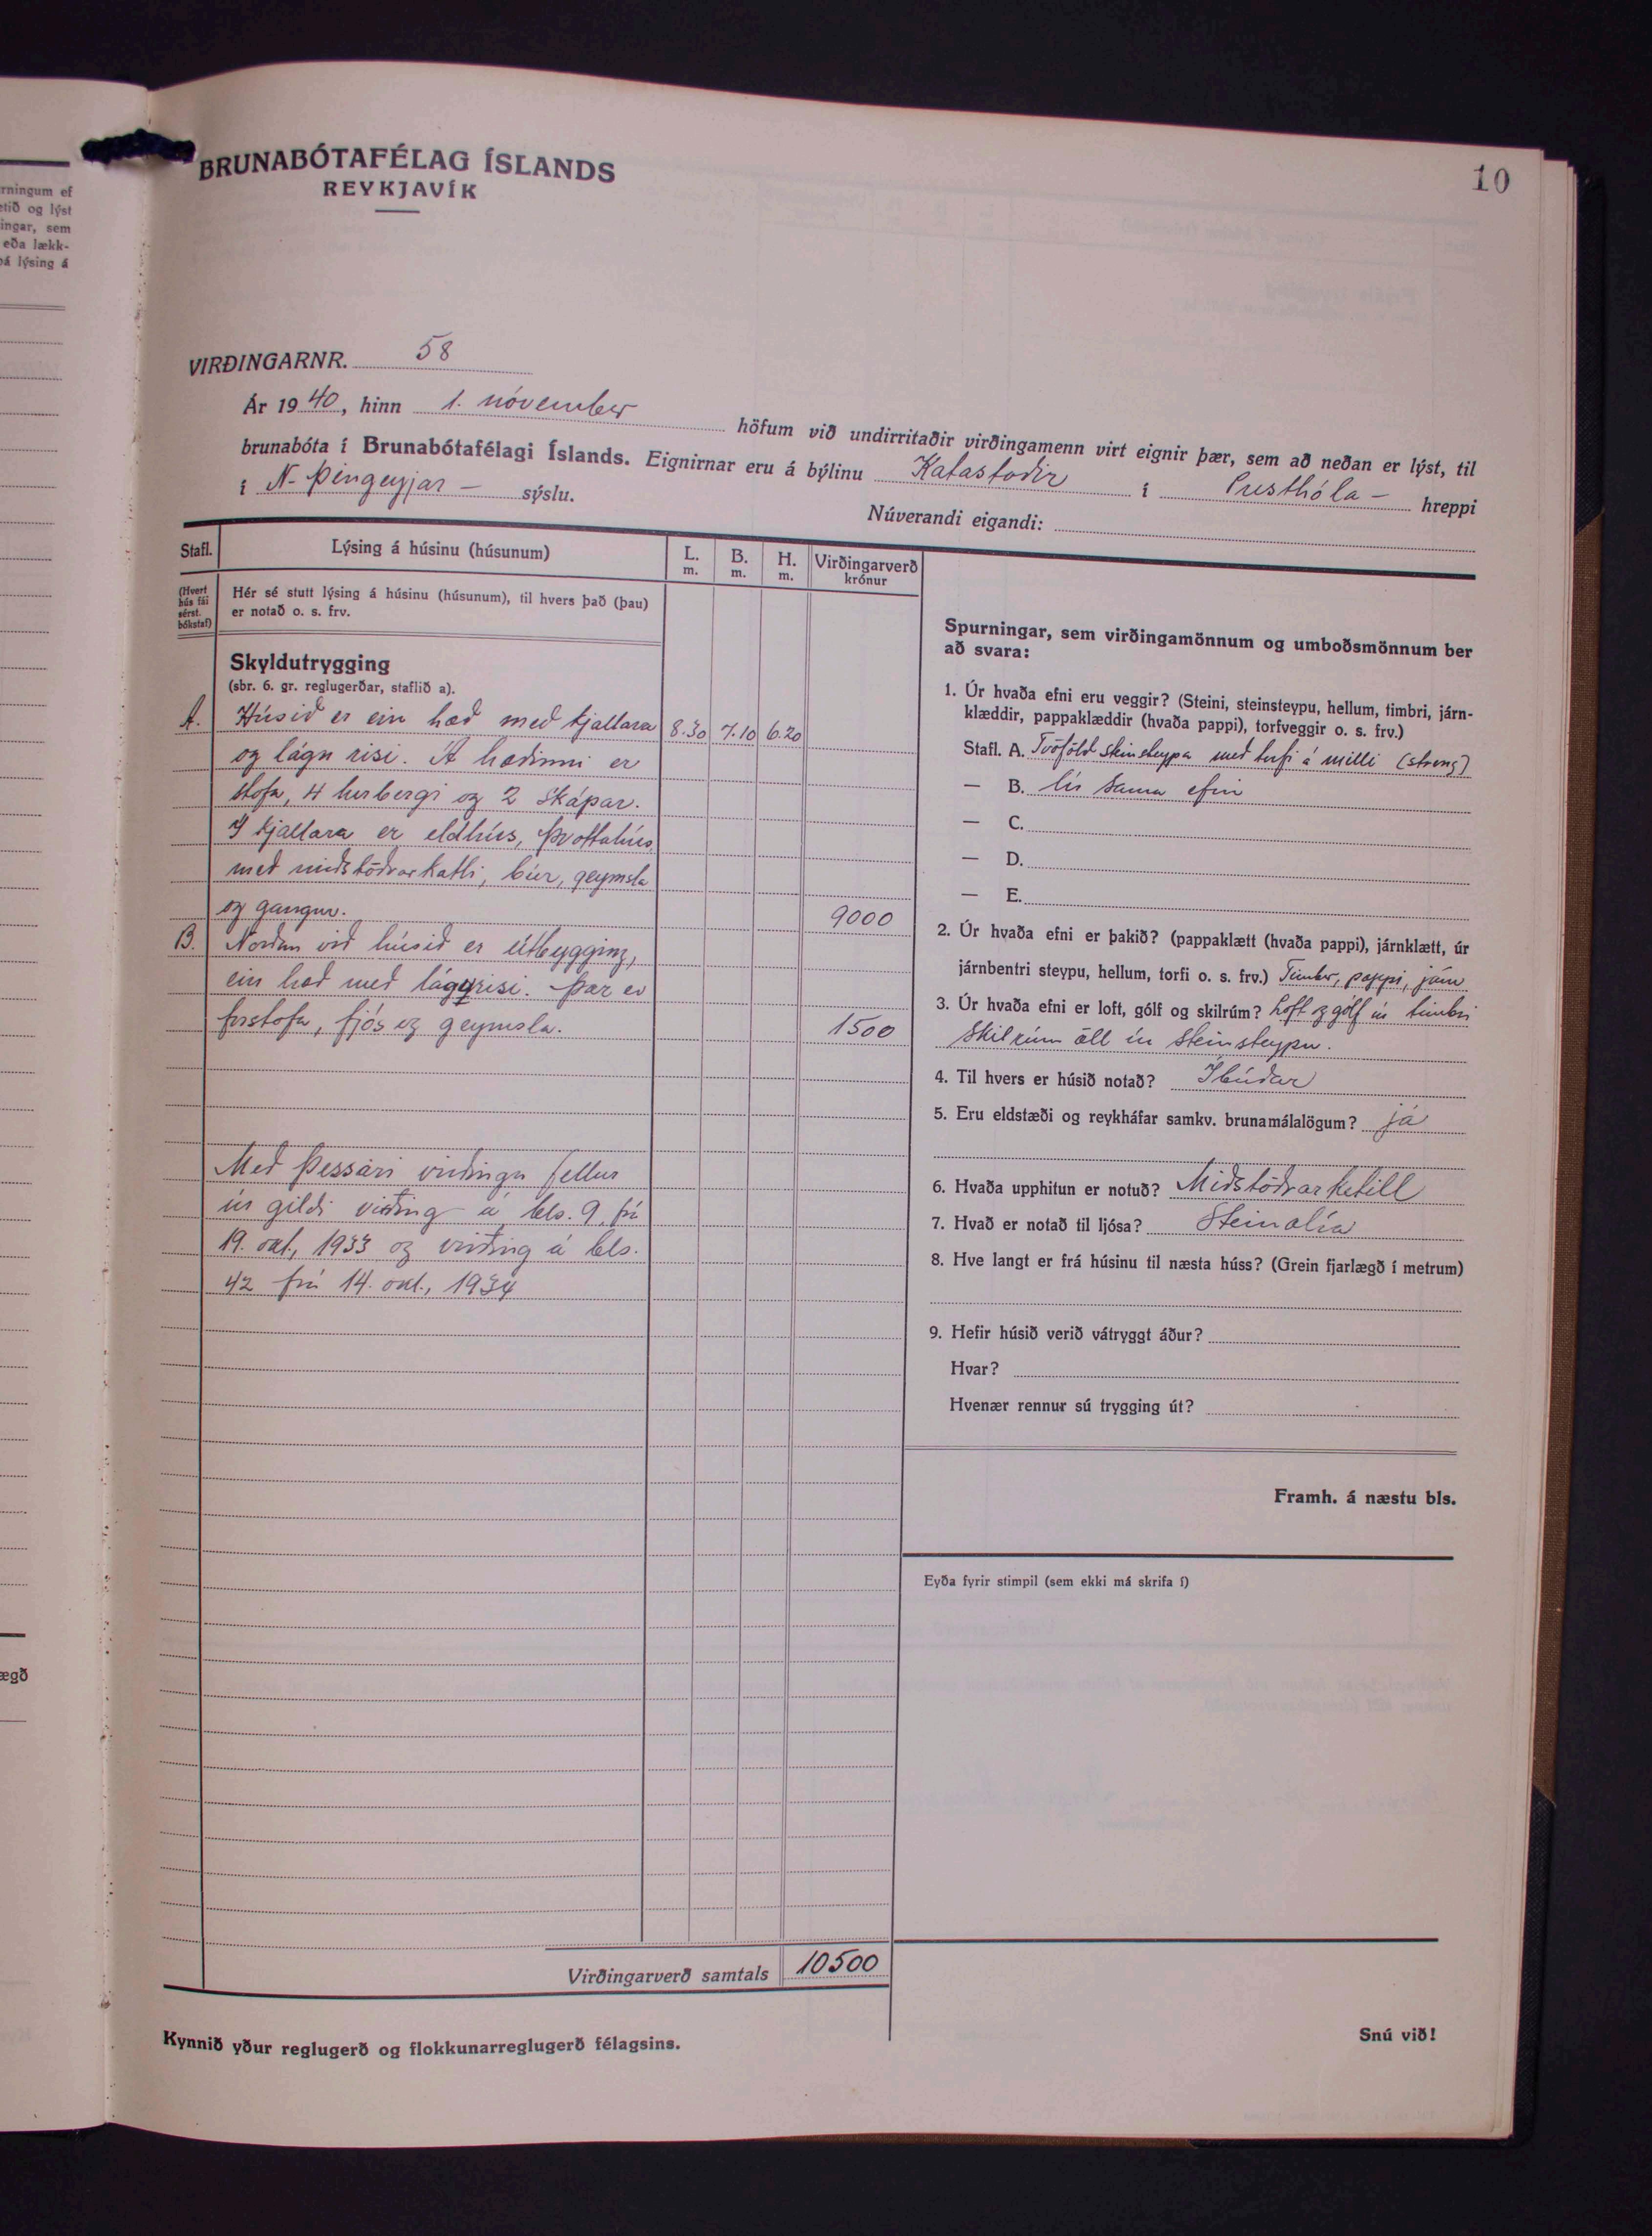 rningum ef
etið og lýst
ingar, sem
eða lækk-
þá lýsing á
ægð
BRUNABÓTAFÉLAG ÍSLANDS
REYKJAVÍK
10
VIRÐINGARNR. 58
Ár 1940, hinn 1. nóvember höfum við undirritaðir virðingamenn virt eignir þær, sem að neðan er lýst, til
brunabóta í Brunabótafélagi Íslands. Eignirnar eru á býlinu Katastaðir í Presthóla- hreppi
í N-Þingeyjar- sýslu.
Núverandi eigandi:
Stafl. Lýsing á húsinu (húsunum) L. m. B. m. H. m. Virðingarverð krónur
(Hvert hús fái sérst. bókstaf)
Hér sé stutt lýsing á húsinu (húsunum), til hvers það (þau)
er notað o. s. frv.
Skyldutrygging
(sbr. 6. gr. reglugerðar, staflið a).
A. Húsið er ein hæð með kjallara 8.30 7.10 6.20
og lágu risi. Á hæðinni er
stofa, 4 herbergi og 2 skápar.
Í kjallara er eldhús, þvottahús
með miðstöðvarkatli, búr, geymsla
og gangur. 9000
B. Norðan við húsið er útbygging,
ein hæð með lágu risi. Þar er
forstofa, fjós og geymsla. 1500
Með þessari virðingu fellur
úr gildi virðing á bls. 9, frá
19. okt., 1933 og virðing á bls.
42 frá 14. okt., 1934
Virðingarverð samtals 10500
Kynnið yður reglugerð og flokkunarreglugerð félagsins.
Spurningar, sem virðingamönnum og umboðsmönnum ber
að svara:
1. Úr hvaða efni eru veggir? (Steini, steinsteypu, hellum, timbri, járn-
klæddir, pappaklæddir (hvaða pappi), torfveggir o. s. frv.)
Stafl. A. Tvöföld steinsteypa með torfi á milli (streng)
— B. Úr sama efni
— C.
— D.
— E.
2. Úr hvaða efni er þakið? (pappaklætt (hvaða pappi), járnklætt, úr
járnbentri steypu, hellum, torfi o. s. frv.) Timbur, pappi, járn
3. Úr hvaða efni er loft, gólf og skilrúm? Loft og gólf úr timbri
Skilrúm öll úr steinsteypu.
4. Til hvers er húsið notað? Íbúðar
5. Eru eldstæði og reykháfar samkv. brunamálalögum? já
6. Hvaða upphitun er notuð? Miðstöðvarketill
7. Hvað er notað til ljósa? Steinolía
8. Hve langt er frá húsinu til næsta húss? (Grein fjarlægð í metrum)
9. Hefir húsið verið vátryggt áður?
Hvar?
Hvenær rennur sú trygging út?
Framh. á næstu bls.
Eyða fyrir stimpil (sem ekki má skrifa í)
Snú við!